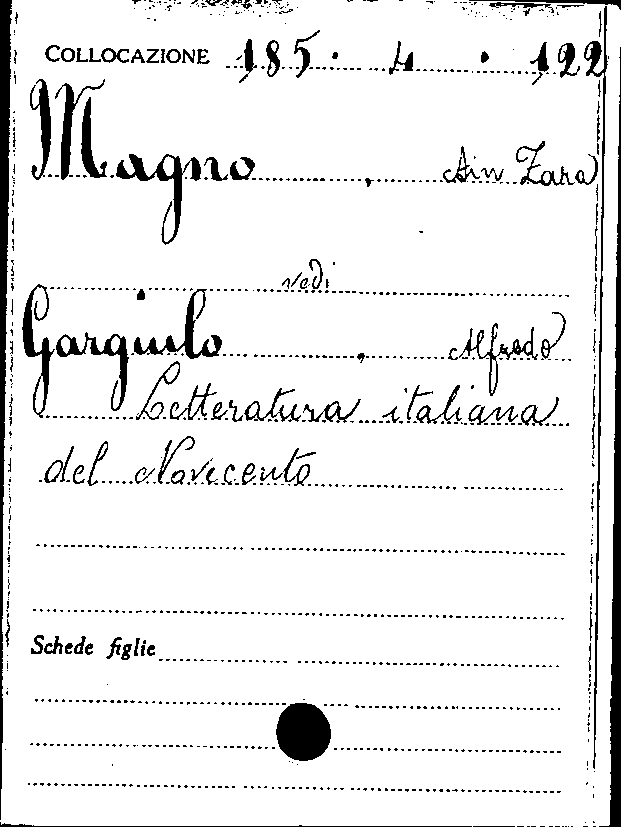 COLLOCAZIONE 185. 4 . 122
Magno , Ain Zara
vedi
Gargiulo , Alfredo
Letteratura italiana
del Novecento
Schede figlie